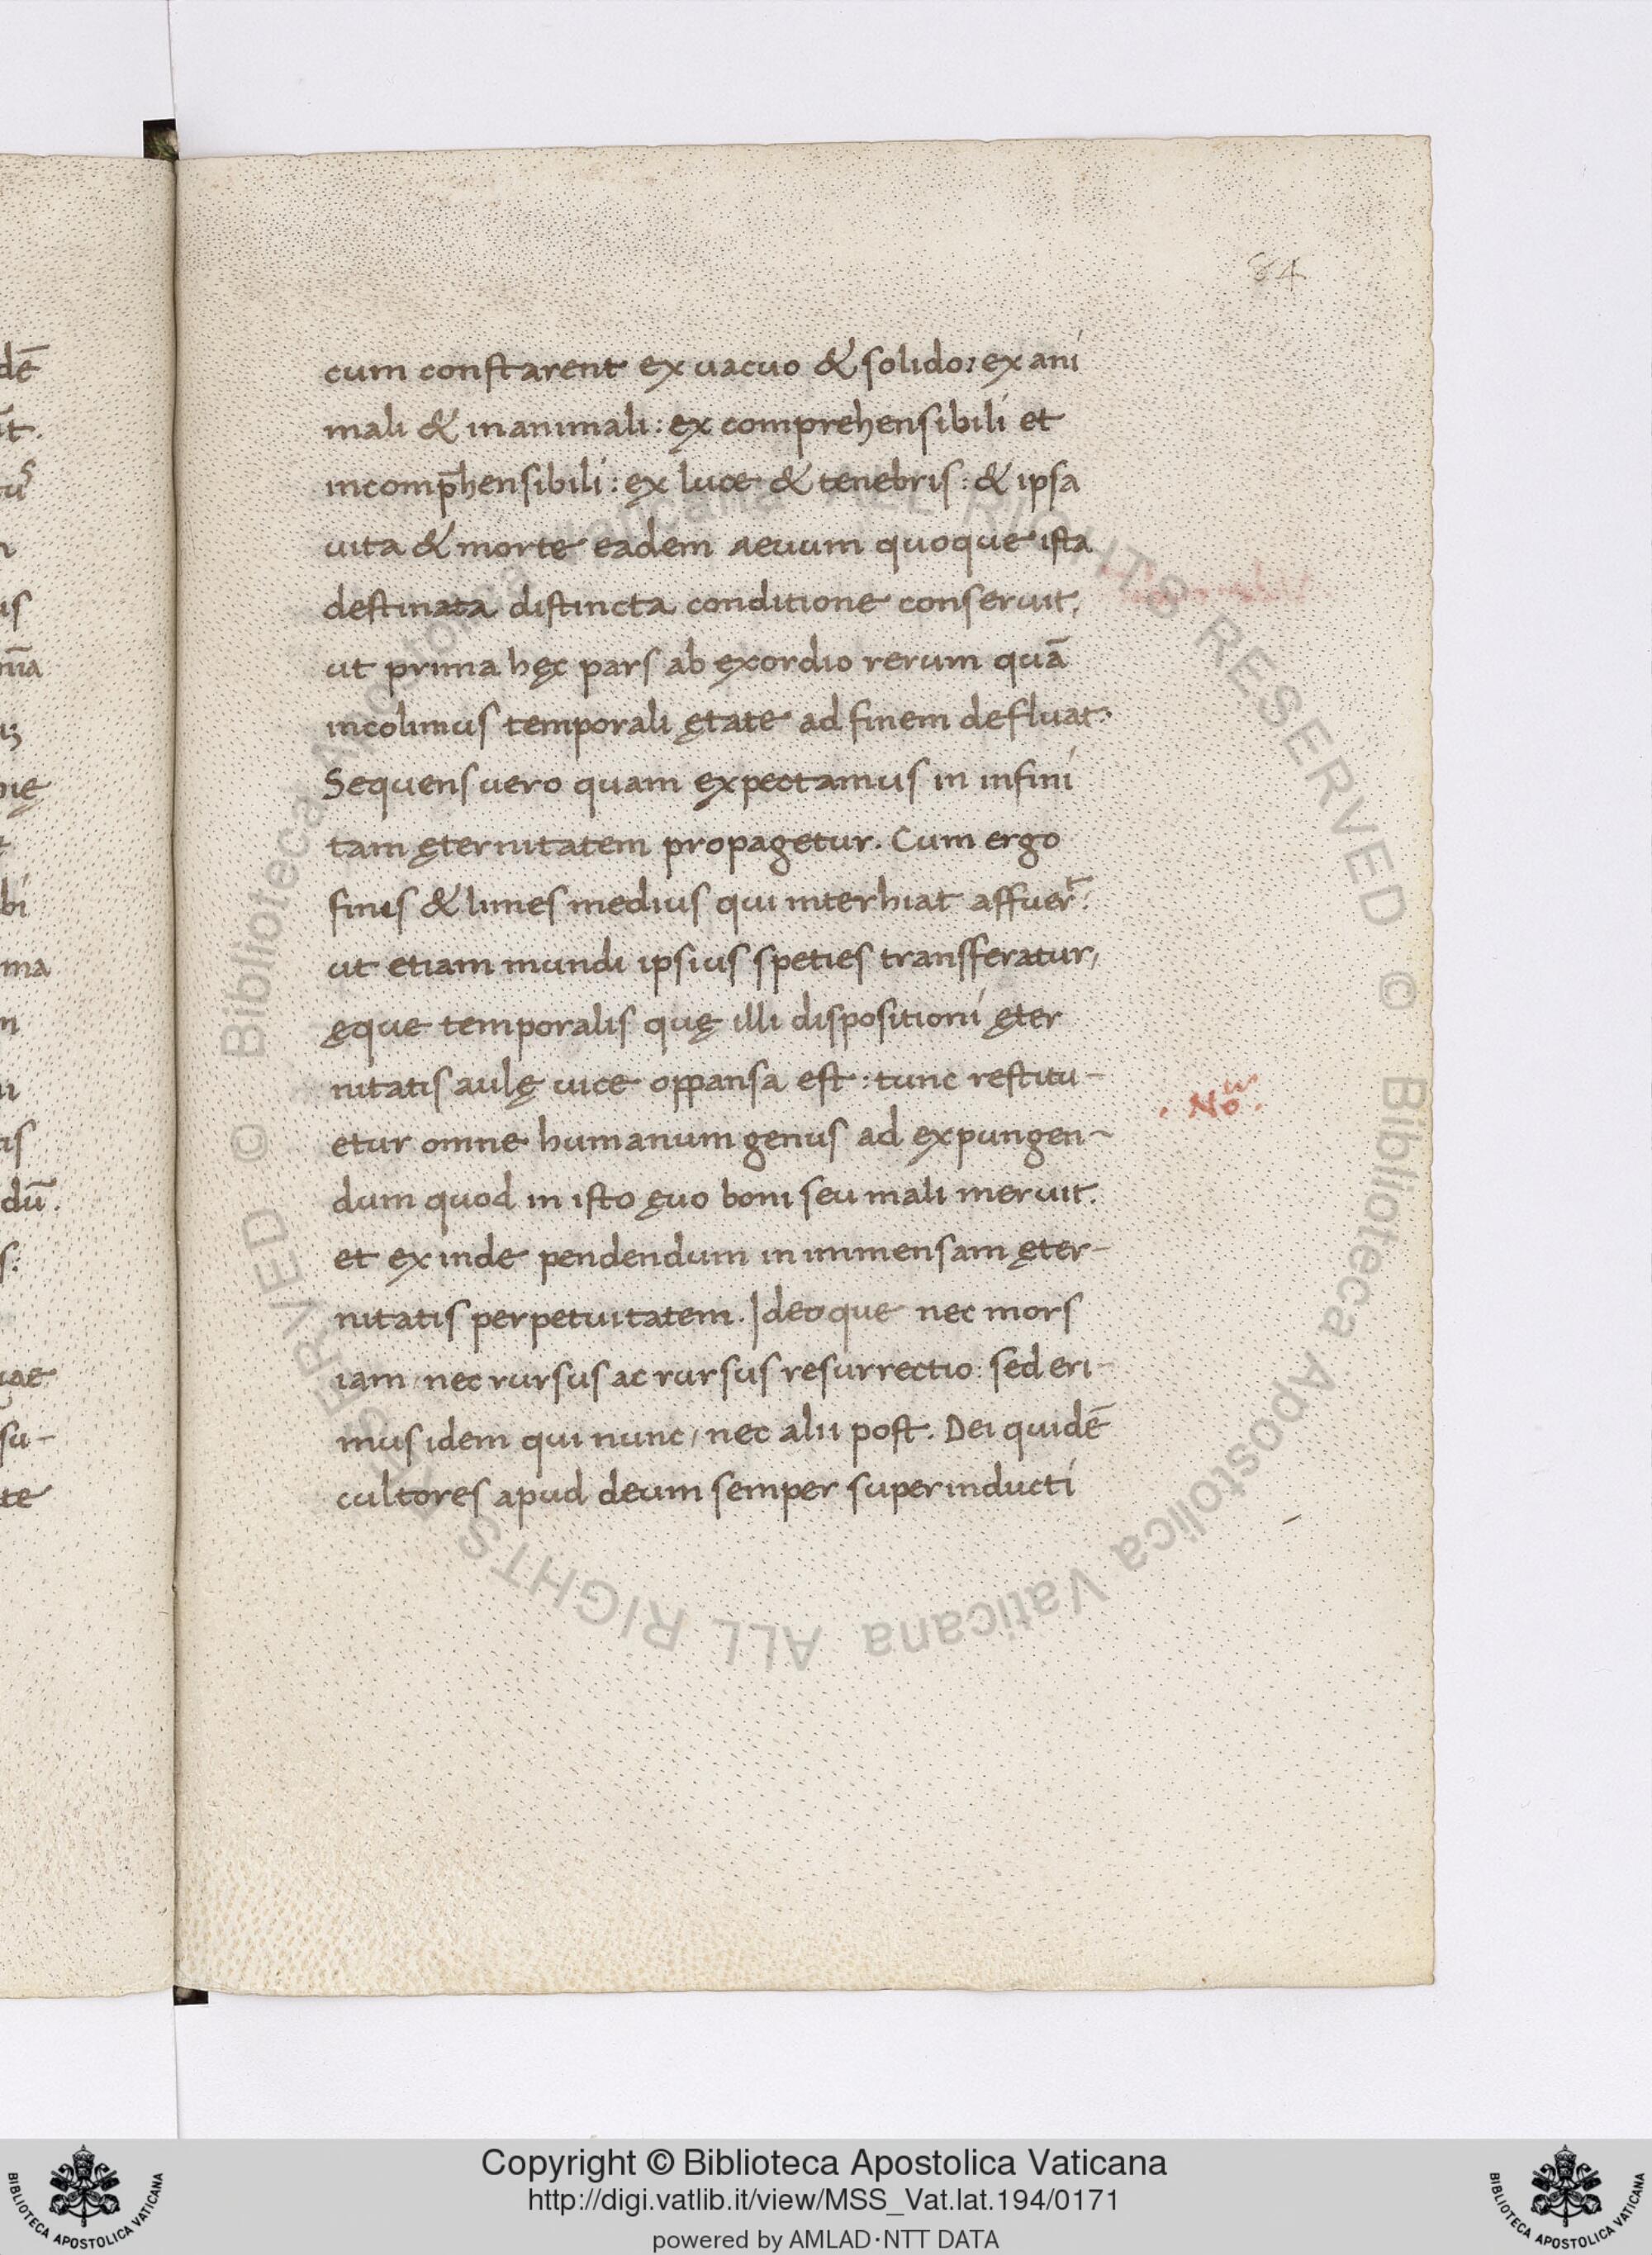 84
cum constarent ex uacuo & solido: ex ani
mali & inanimali: ex comprehensibili et
incomp̄hensibili: ex luce & tenebris: & ipsa
uita & morte eadem aeuum quoque ista
destinata distincta conditione conseruit,
ut prima hęc pars ab exordio rerum quā
incolimus temporali ętate ad finem defluat:
Sequens uero quam expectamus in infini
tam ęternitatem propagetur. Cum ergo
finis & limes medius qui interhiat affuer̄:
ut etiam mundi ipsius speties transferatur,
ęque temporalis quę illi dispositioni ęter
nitatis aulę uice oppansa est: tunc restitu-
etur omne humanum genus ad expungen-
dum quod in isto ęuo boni seu mali meruit.
et exinde pendendum in immensam ęter-
nitatis perpetuitatem. Ideoque nec mors
iam, nec rursus ac rursus resurrectio: sed eri-
mus idem qui nunc, nec alii post. Dei quidē
cultores apud deum semper superinducti
. No.
dē
us
bi
ma
dū.
su-
te
© Biblioteca Apostolica Vaticana ALL RIGHTS RESERVED
© Biblioteca Apostolica Vaticana ALL RIGHTS RESERVED
Copyright © Biblioteca Apostolica Vaticana
http://digi.vatlib.it/view/MSS_Vat.lat.194/0171
powered by AMLAD·NTT DATA
BIBLIOTECA APOSTOLICA VATICANA
BIBLIOTECA APOSTOLICA VATICANA